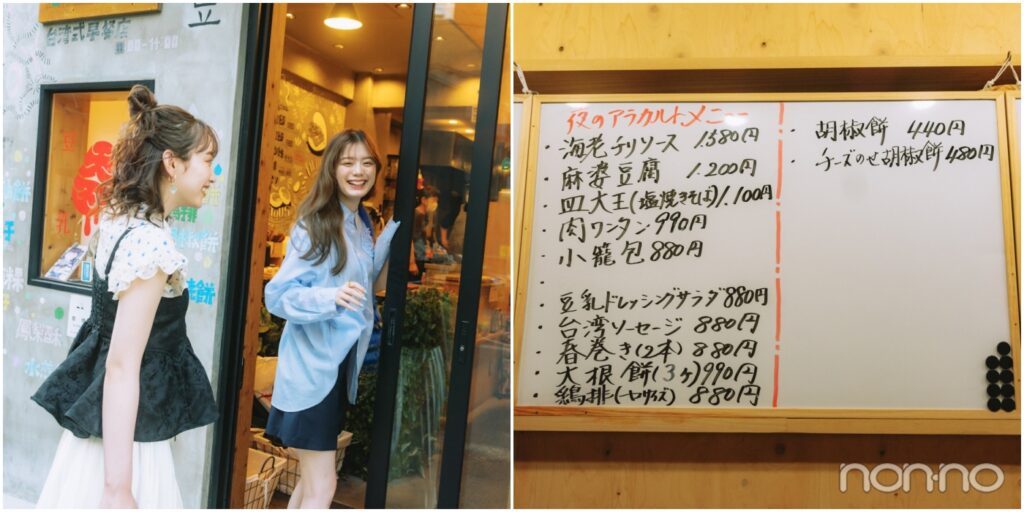 豆
台湾式早餐店
豆
乳
夜のアラカルトメニュー
・海老チリソース 1.580円
・麻婆豆腐 1.200円
・皿大王(塩焼きそば)1.100円
・肉ワンタン 990円
・小籠包 880円
・豆乳ドレッシングサラダ 880円
・台湾ソーセージ 880円
・春巻き(2本) 880円
・大根餅(3ヶ) 990円
・鶏排(一口サイズ) 880円
・胡椒餅 440円
・チーズのせ胡椒餅 480円
non·no